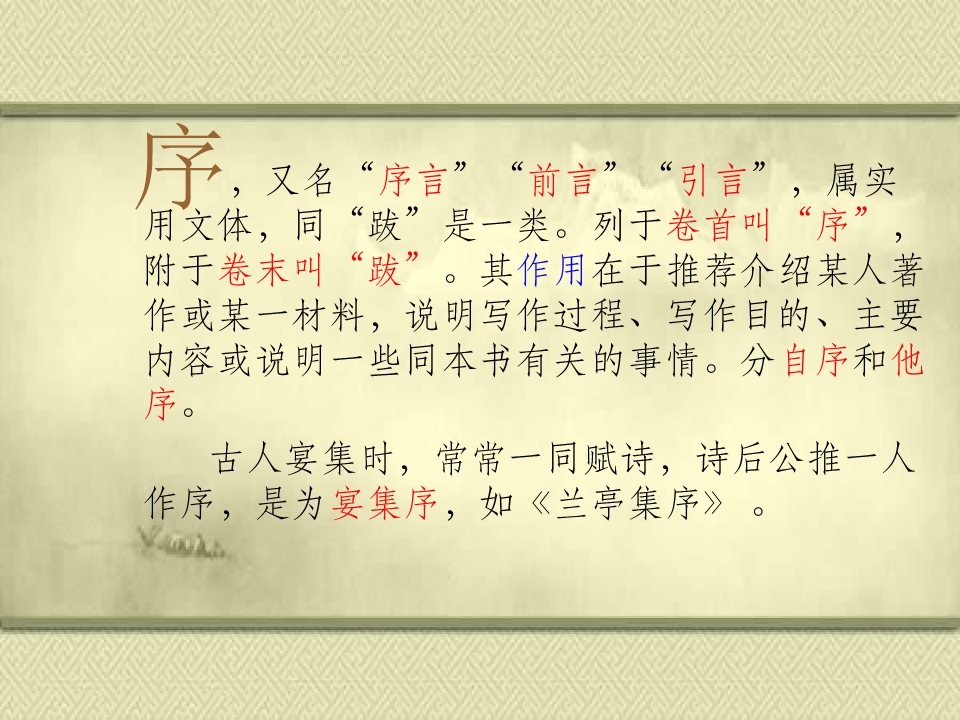 序，又名“序言”“前言”“引言”，属实
用文体，同“跋”是一类。列于卷首叫“序”，
附于卷末叫“跋”。其作用在于推荐介绍某人著
作或某一材料，说明写作过程、写作目的、主要
内容或说明一些同本书有关的事情。分自序和他
序。
古人宴集时，常常一同赋诗，诗后公推一人
作序，是为宴集序，如《兰亭集序》 。